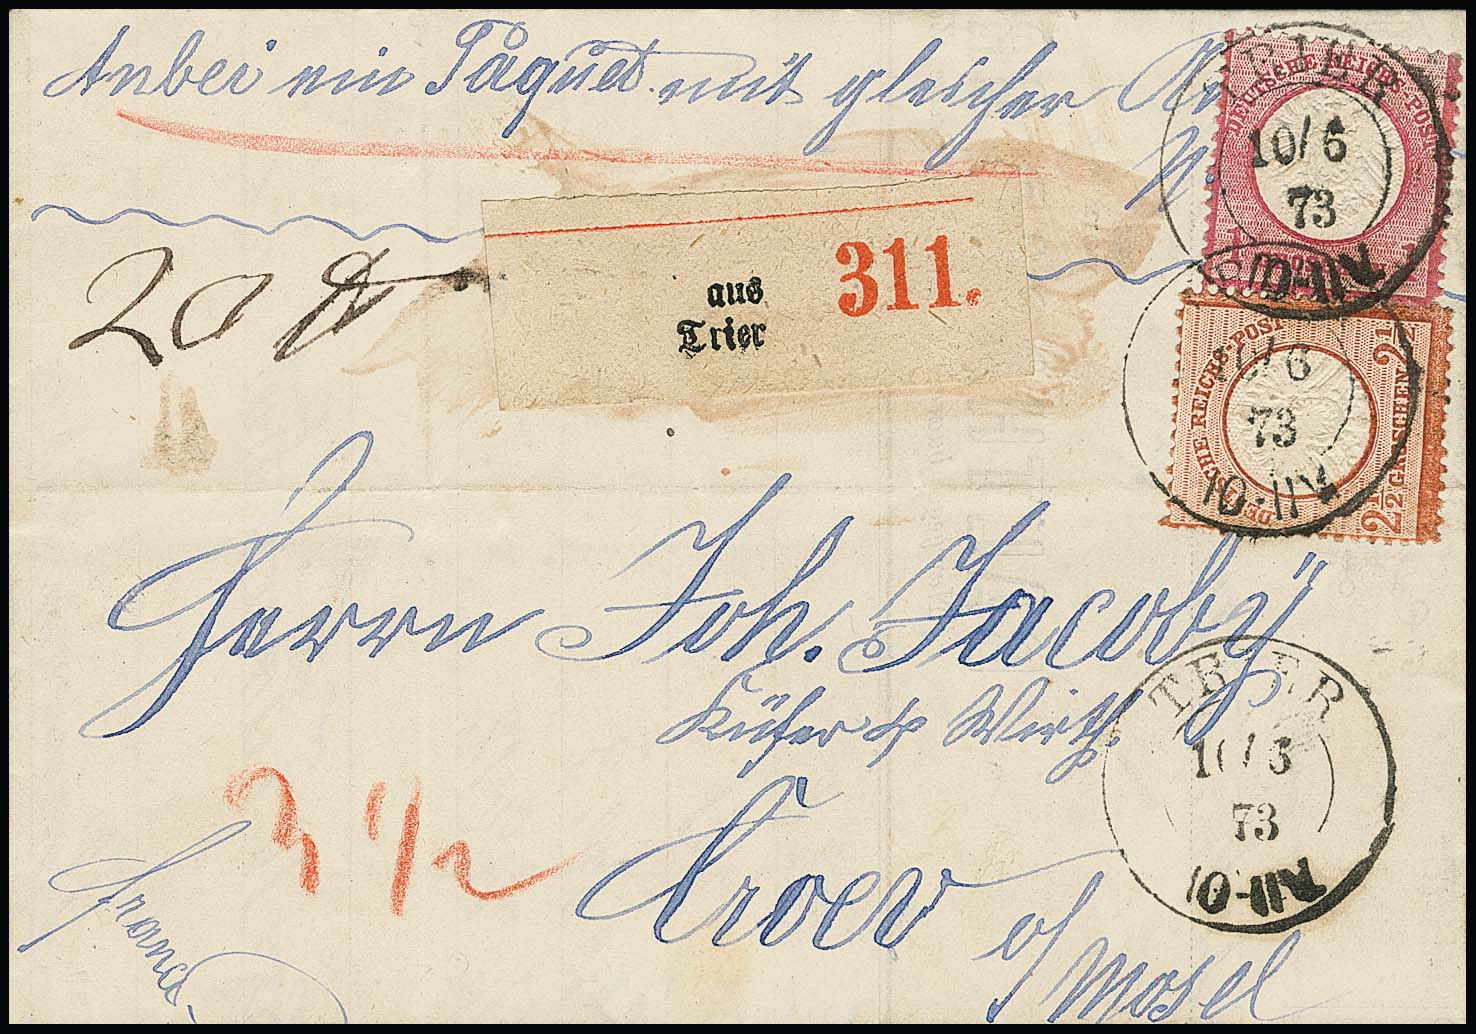 Anbei ein Paquet mit gleicher
20 ℔
aus
Trier
311.
TRIER
10/6
73
10-11V
DEUTSCHE REICHS-POST
1
1
10/6
73
10-11V
REICHS-POST
2 1/2
2 1/2 GROSCHEN 2 1/2
Herrn Joh. Jacoby
Küfer & Wirth.
Croev
o/ Mosel
3 1/2
franco.
TRIER
10/6
73
10-11V